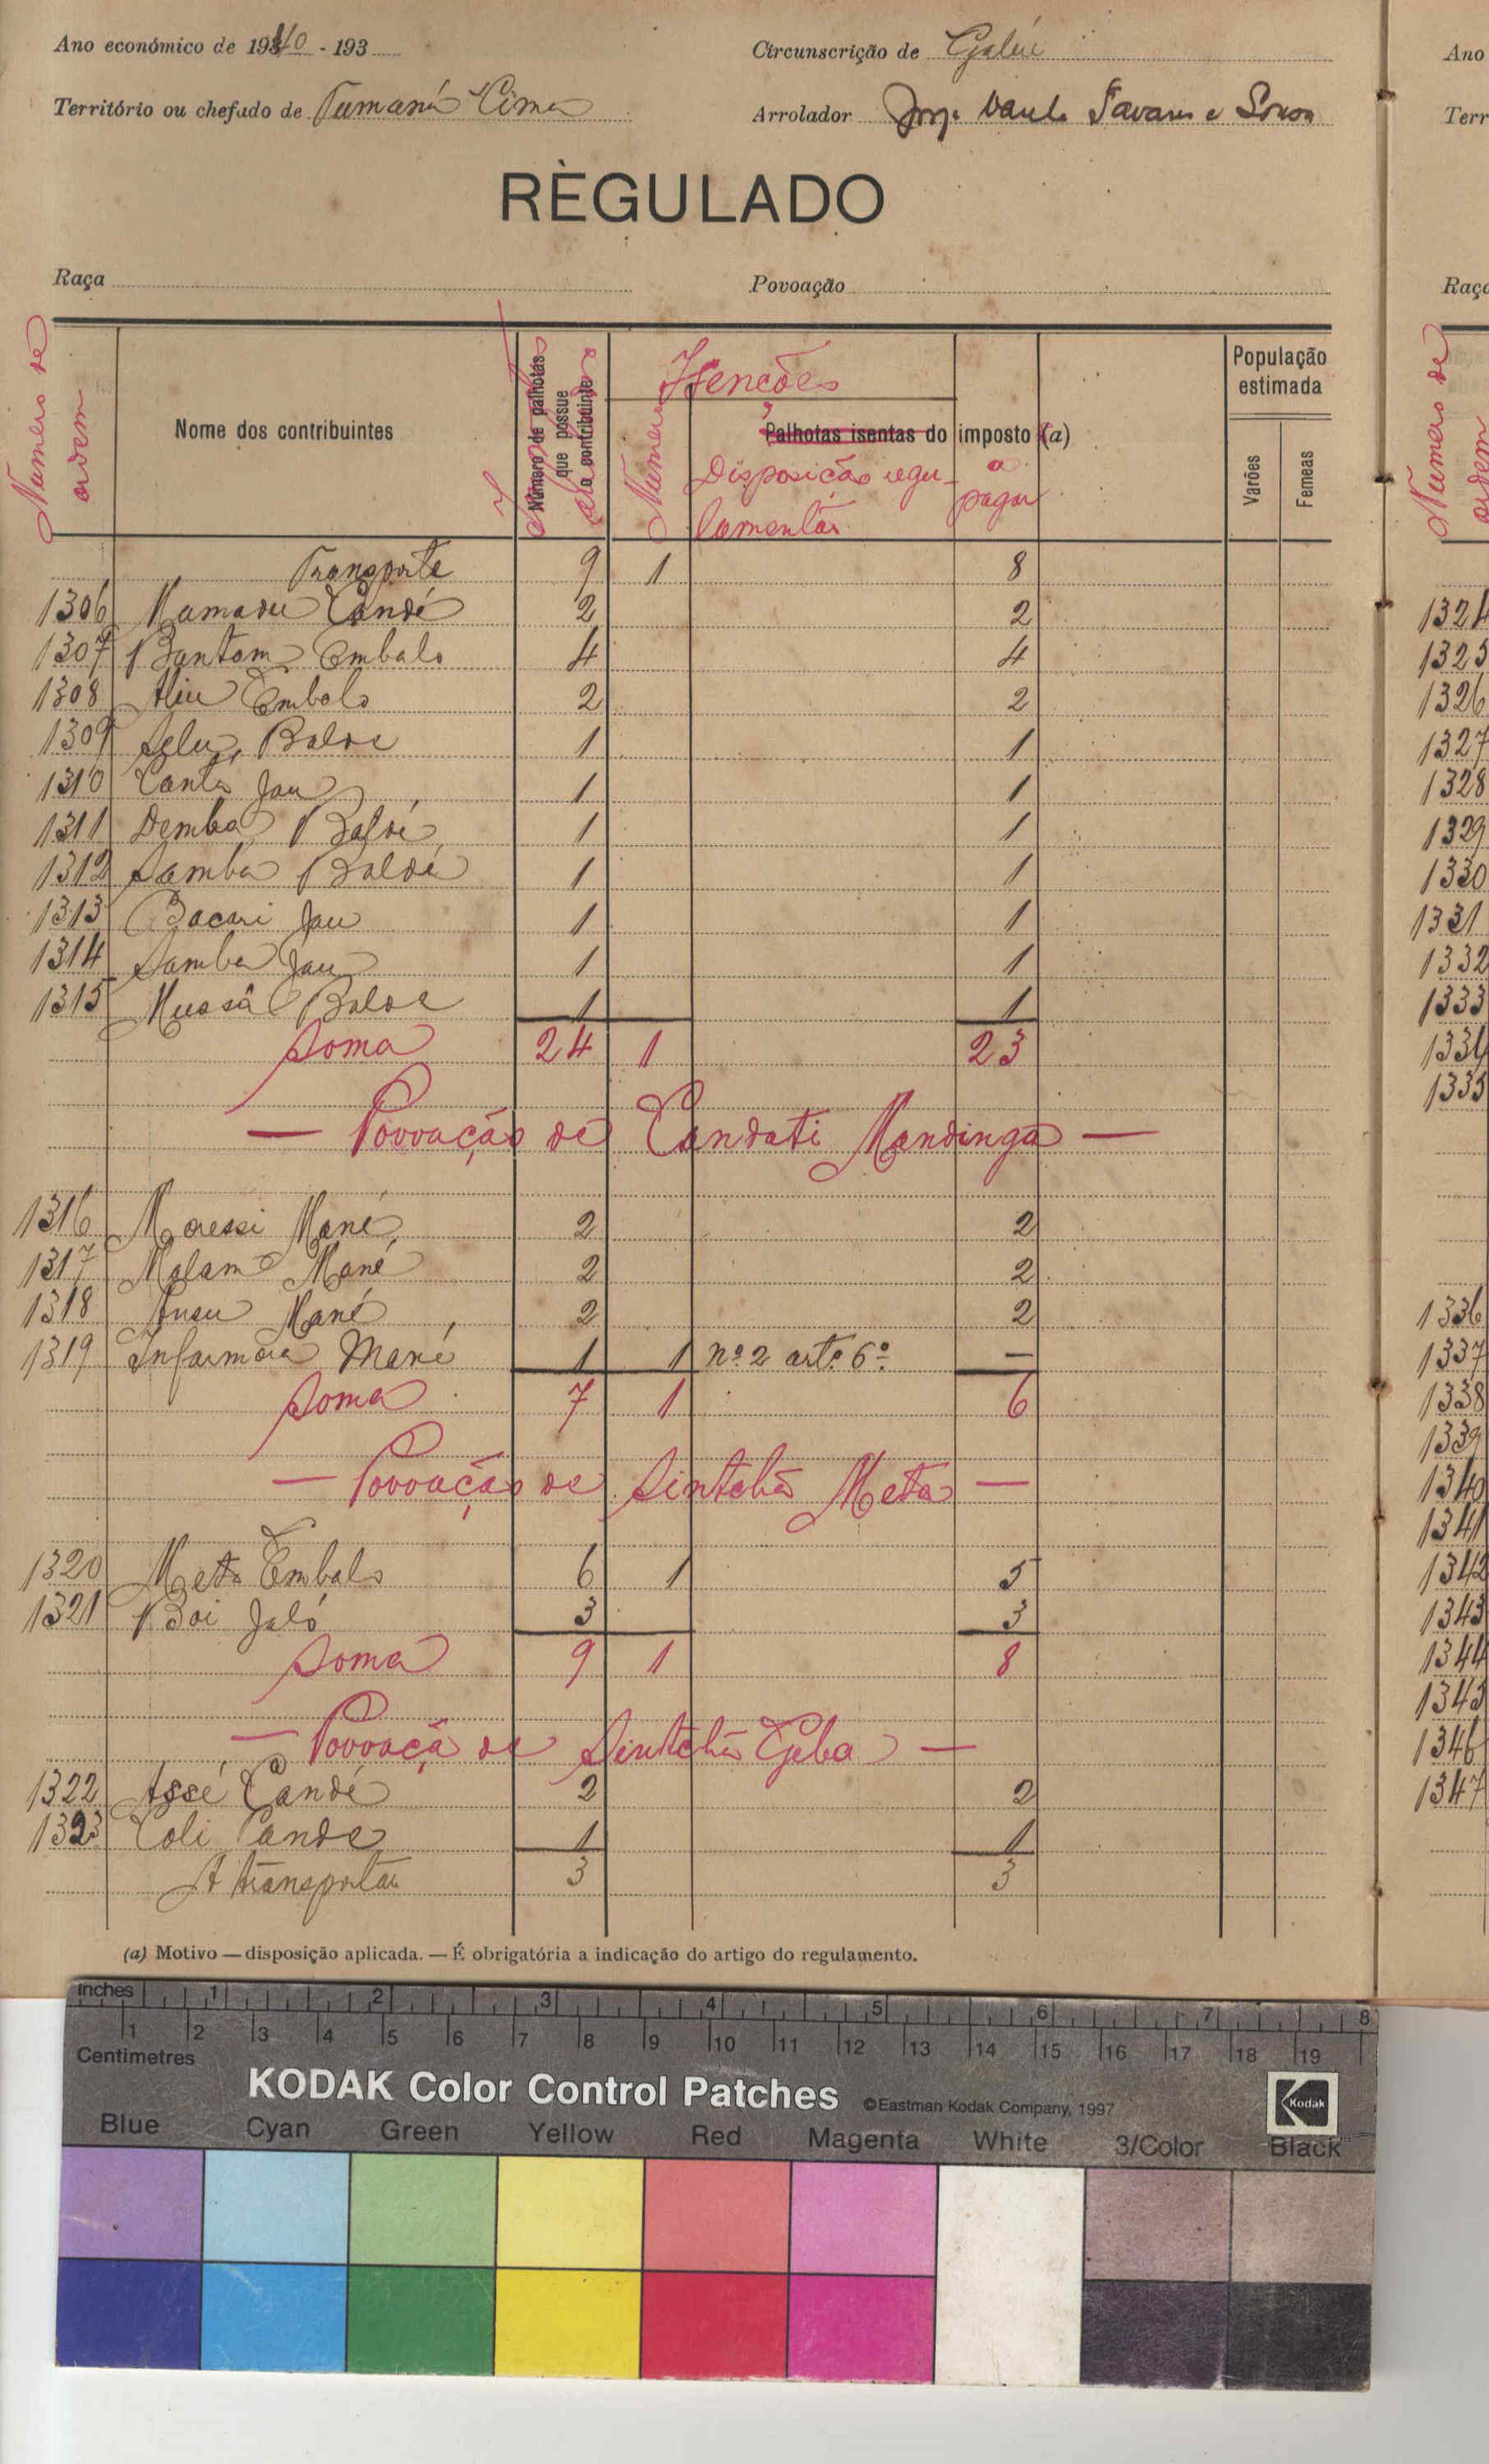 Ano económico de 1940 - 193
Circunscrição de Gabú
Território ou chefado de Tumaná Cima
Arrolador Tavares e Sousa
RÈGULADO
Raça
Povoação
Numero de ordem
Nome dos contribuintes
Número de palhotas que possue o contribuinte
Isenções
Numero
Palhotas isentas do imposto (a)
Disposição regulamentar
a pagar
População estimada
Varões
Femeas
Transporte 9 1 8
1306 Mamadu Candé 2 2
1307 Bantam Embalo 4 4
1308 Aliu Embalo 2 2
1309 Selu Balde 1 1
1310 Cantá Jau 1 1
1311 Demba Baldé 1 1
1312 Samba Baldé 1 1
1313 Bacari Jau 1 1
1314 Samba Jau 1 1
1315 Mussá Balde 1 1
Soma 24 1 23
— Povoação de Candati Mandinga —
1316 Mané 2 2
1317 Malam Mané 2 2
1318 Mané 2 2
1319 Infamara Mané 1 1 nº 2 artº 6º —
Soma 7 1 6
— Povoação de Sintchã Meta —
1320 Meta Embalo 6 1 5
1321 Boi Jaló 3 3
Soma 9 1 8
— Povoaçã de Sintchã Geba —
1322 Assé Candé 2 2
1323 Coli Cande 1 1
A transportar 3 3
(a) Motivo — disposição aplicada. — É obrigatória a indicação do artigo do regulamento.
Ano
Terr
Raça
Numero de ordem
1324
1325
1326
1327
1328
1329
1330
1331
1332
1333
1334
1335
1336
1337
1338
1339
1340
1341
1342
1343
1344
1345
1346
1347
Inches 1 2 3 4 5 6 7 8
1 2 3 4 5 6 7 8 9 10 11 12 13 14 15 16 17 18 19
Centimetres
KODAK Color Control Patches ©Eastman Kodak Company, 1997 Kodak
Blue Cyan Green Yellow Red Magenta White 3/Color Black